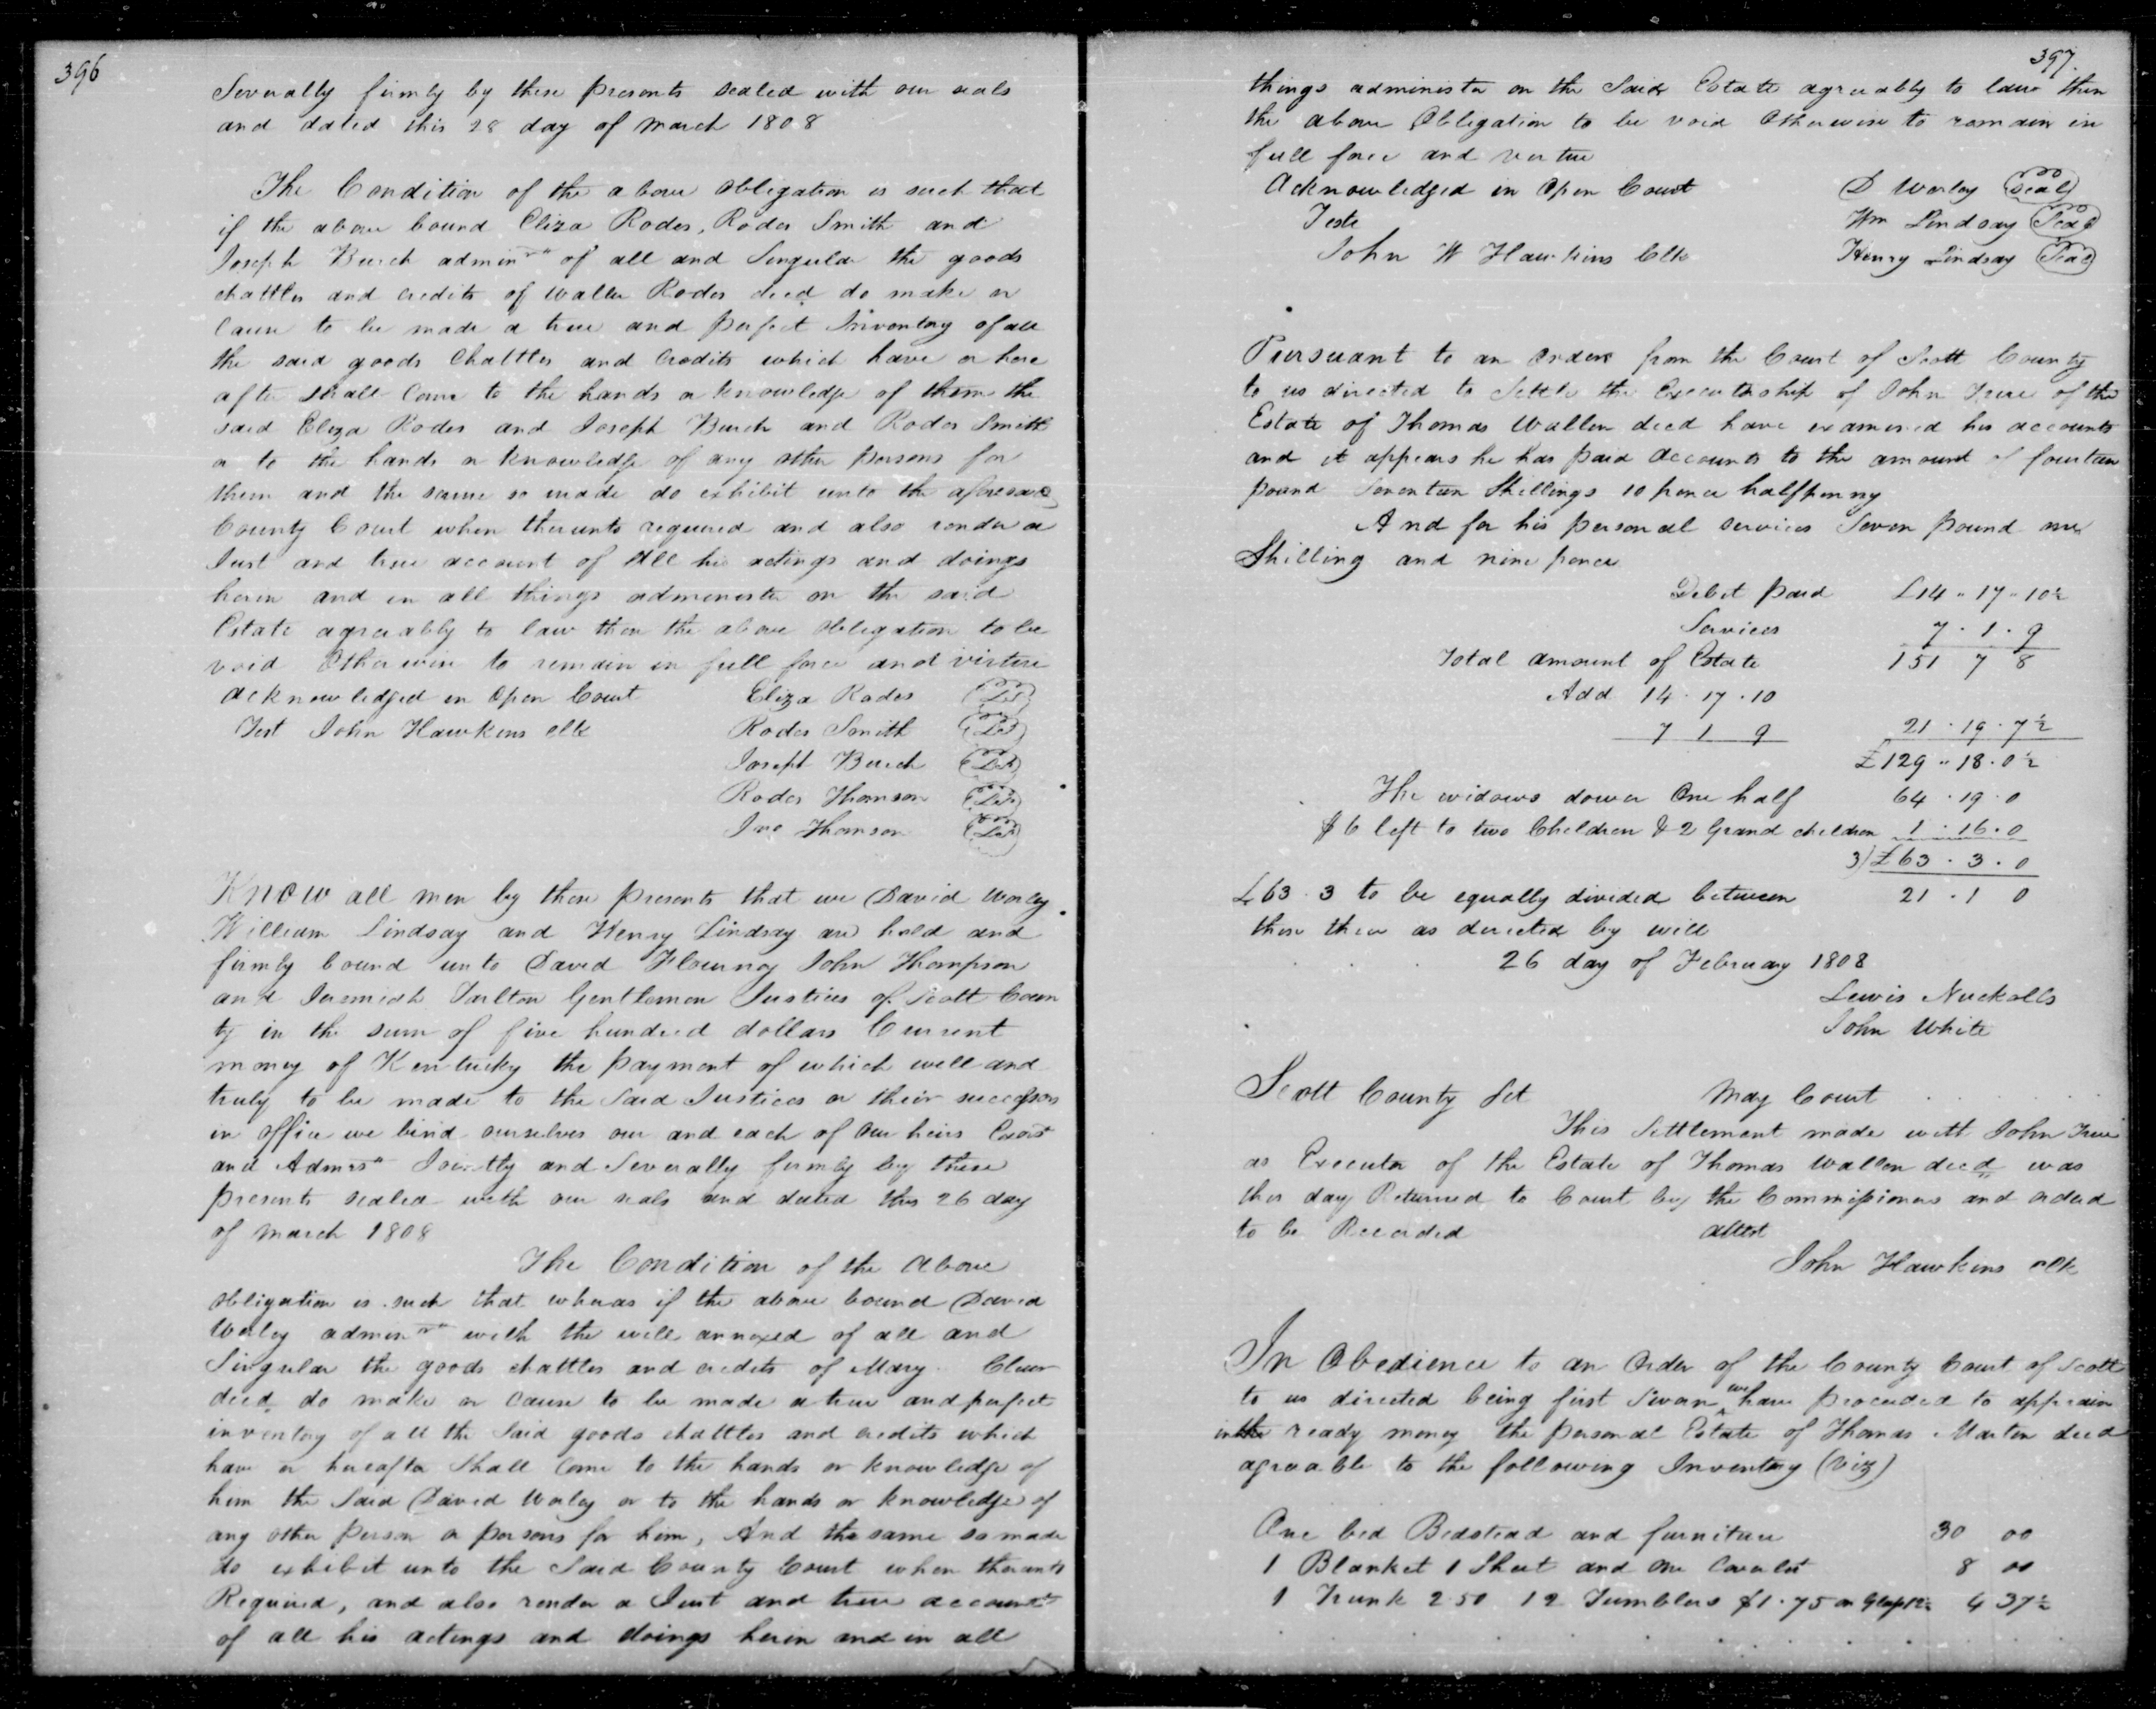 396
Severally firmly by these presents sealed with our seals
and dated this 28 day of march 1808
The Condition of the above obligation is such that
if the above bound Eliza Rodes, Rodes Smith and
Joseph Burch admin of all and Singular the goods
chattles and credits of Waller Rodes decd do make or
Cause to be made a true and perfect Inventory of all
the said goods Chattles and Credits which have or here
after shall Come to the hands or knowledge of them the
said Eliza Rodes and Joseph Burch and Rodes Smith
or to the hands or knowledge of any other persons for
them and the same so made do exhibit unto the aforesaid
County Court when thereunto required and also render a
Just and true account of all his actings and doings
herein and in all things administer on the said
Estate agreeably to law then the above obligation to be
void Otherwise to remain in full force and virtue
acknowledged in Open Court Eliza Rodes
Test John Hawkins clk Rodes Smith
Joseph Burch
Rodes Thomson
Jno Thomson
Know all men by these presents that we David Worley
William Lindsay and Henry Lindsay are held and
firmly bound unto David Flournoy John Thompson
and Jeremiah Tarlton Gentlemen Justices of Scott Coun
ty in the sum of five hundred dollars Current
money of Kentucky the payment of which well and
truly to be made to the Said Justices or their successors
in office we bind ourselves our and each of our heirs Exors
and Admrs Jointly and Severally firmly by these
presents sealed with our seals and dated this 26 day
of march 1808
The Condition of the Above
obligation is such that whereas if the above bound David
Worley admin with the will annexed of all and
Singular the goods chattles and credits of Mary
decd do make or Cause to be made a true and perfect
inventory of all the Said goods chattles and credits which
have or hereafter Shall Come to the hands or knowledge of
him the Said David Worley or to the hands or knowledge of
any other person or persons for him, And the same so made
do exhibit unto the Said County Court when thereunto
Required, and also render a Just and true account
of all his actings and doings herein and in all
397.
things administer on the Said Estate agreeably to law then
the above Obligation to be void Otherwise to remain in
full force and vertue
Acknowledged in Open Court D Worley Seal
Teste Wm Lindsay Seal
John W Hawkins Clk Henry Lindsay Seal
Pursuant to an Order from the Court of Scott County
to us directed to Settle the Executorship of John True of the
Estate of Thomas Wallen decd have examined his accounts
and it appears he has paid Accounts to the amount of fourteen
pound Seventeen Shillings 10 pence halfpenny
And for his personal services Seven pound one
Shilling and nine pence
Debit paid £14 " 17 " 10½
Services 7 . 1 . 9
Total amount of Estate 151 7 8
Add 14 . 17 . 10
7 1 9 21 . 19 . 7½
£129 " 18 . 0½
The widows dower One half 64 . 19 . 0
$6 left to two Children & 2 Grand children 1 . 16 . 0
3) £63 . 3 . 0
£63 . 3 to be equally divided between 21 . 1 0
those three as directed by will
26 day of February 1808
Lewis Nuckolls
John White
Scott County Sct May Court
This Settlement made with John True
as Executor of the Estate of Thomas Wallen decd was
this day Returned to Court by the Commissioners and orderd
to be Recorded attest
John Hawkins clk
In Obedience to an Order of the County Court of Scott
to us directed being first Sworn we have proceeded to appraise
in the ready money the personal Estate of Thomas Martin decd
agreeable to the following Inventory (Viz)
One bed Bedstead and furniture 30 00
1 Blanket 1 Sheet and One Coverlet 8 00
1 Trunk 2.50 12 Tumblers $1.75 4 37½